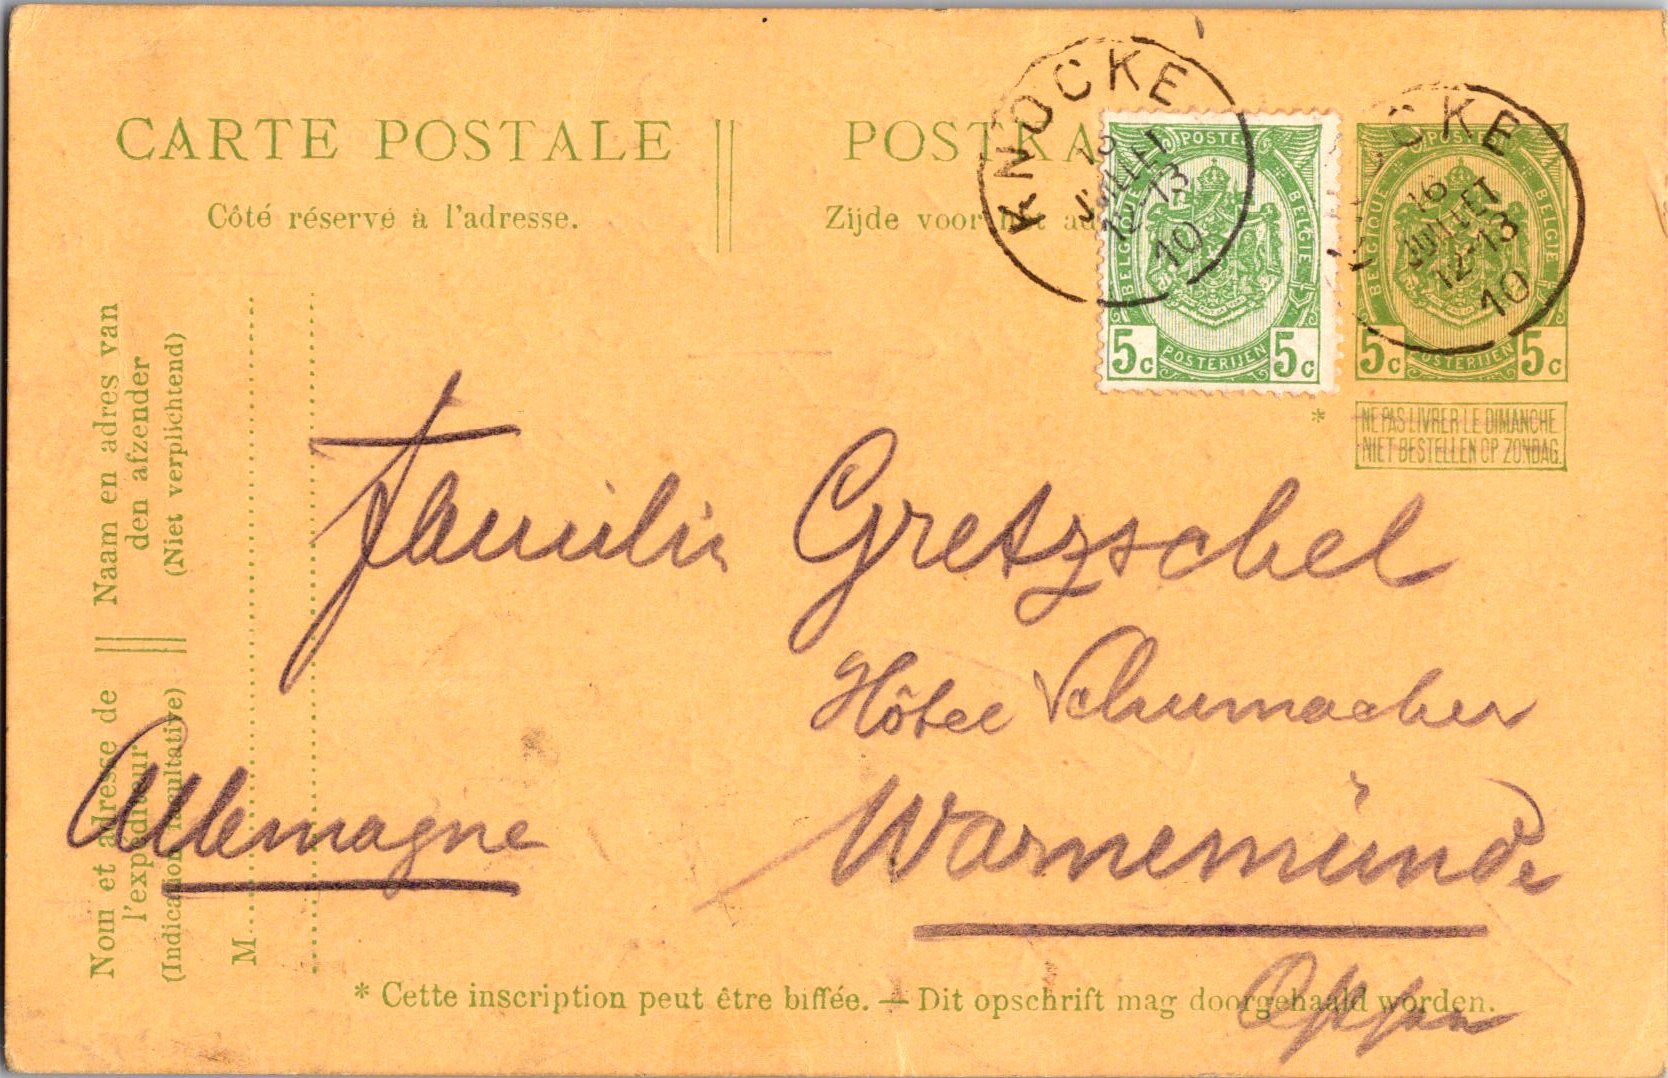 CARTE POSTALE
Côté réservé à l'adresse.
POSTKA
Zijde voor het ad
KNOCKE
JUILLET
10
POSTES
BELGIQUE
BELGIE
5c 5c
POSTERIJEN
CKE
16
JUILLET
12-13
10
POSTES
BELGIQUE
BELGIE
5c 5c
POSTERIJEN
*
NE PAS LIVRER LE DIMANCHE
NIET BESTELLEN OP ZONDAG
Naam en adres van
den afzender
(Niet verplichtend)
Nom et adresse de
l'expéditeur
(Indication facultative)
M
Familie Gretzschel
Hôtel Schumacher
Allemagne
Warnemünde
* Cette inscription peut être biffée. — Dit opschrift mag doorgehaald worden.